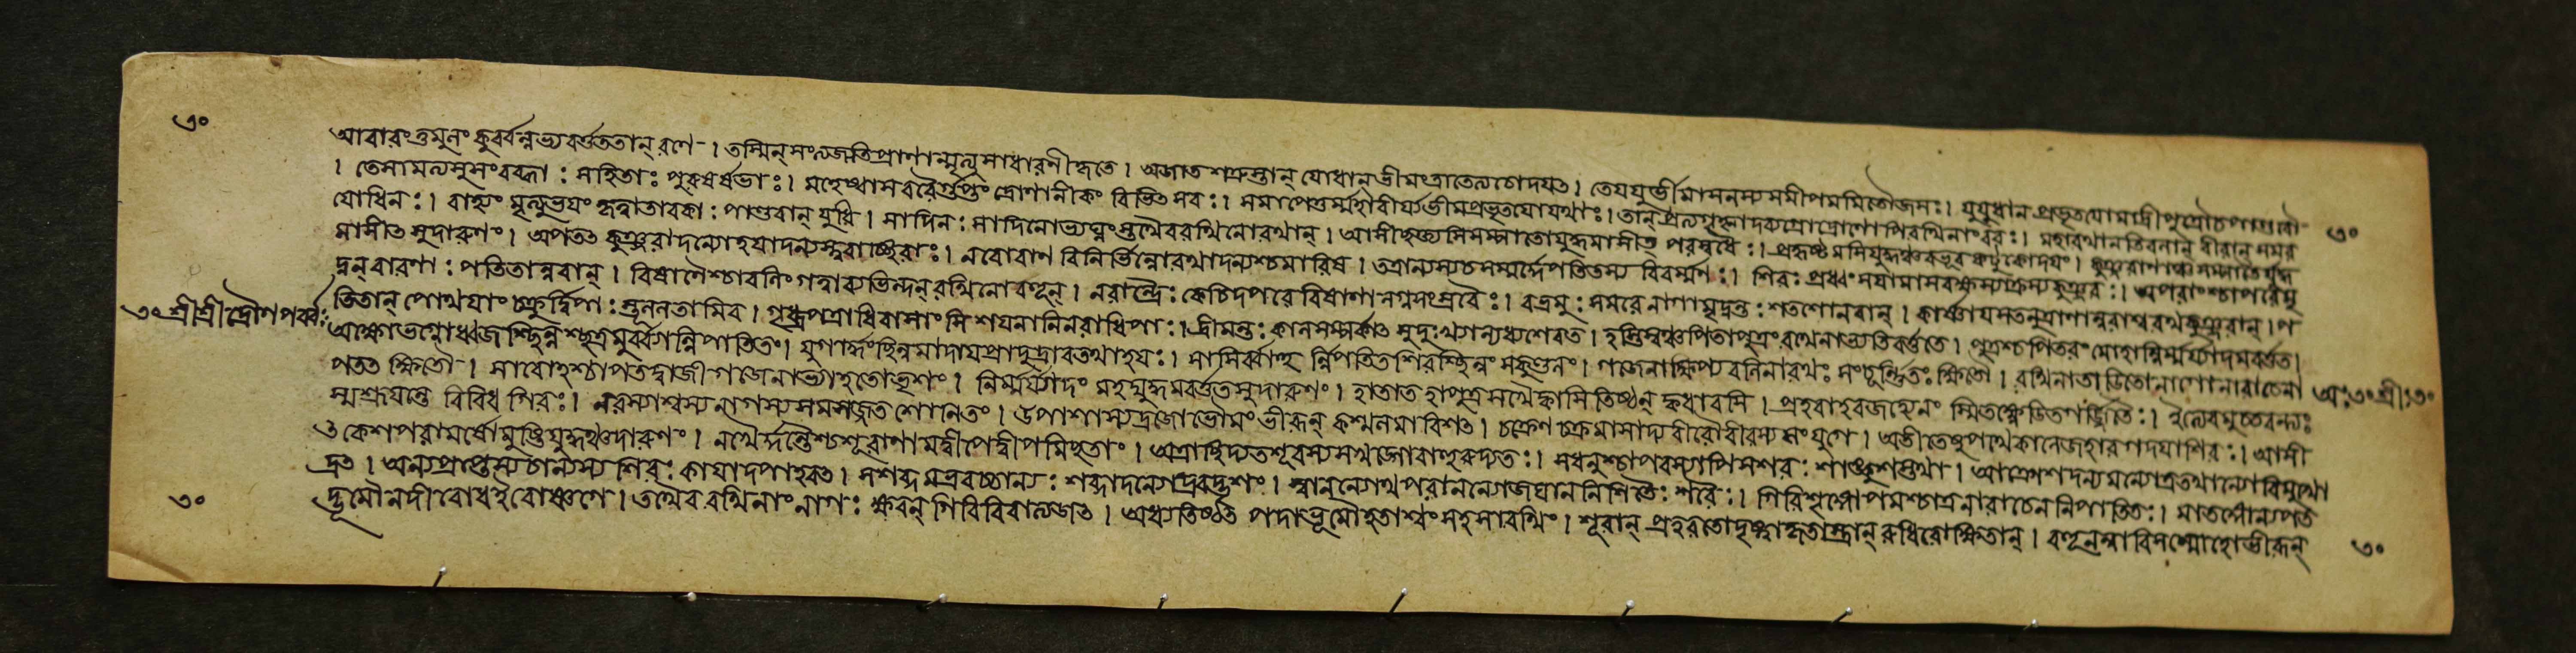 ৩০
আবারং তুমুলং কুর্ব্বন্নভ্যবর্ত্তত তান্ রণে । তস্মিন্ সংত্যজতি প্রাণান্মৃত্যুসাধারণীকৃতে । অজাতশত্রুস্তান্ যোধান্ ভীমং ত্রাতেত্যচোদয়ৎ । তে যযুর্ভীমাসনস্য সমীপমমিতৌজসঃ । যুযুধানপ্রভৃতয়ো মাদ্রীপুত্রৌ চ পাণ্ডবৌ
। তে সামত্য সুসংরব্ধাঃ সহিতাঃ পুরুষর্ষভাঃ । মহেষ্বাসবরৈর্গুপ্তং দ্রোণানীকং বিভিৎসবঃ । সমাপেতুর্ম্মহাবীর্য্যা ভীমপ্রভৃতয়ো রথাঃ । তান্ প্রত্যগৃহ্নাদব্যগ্রো দ্রোণোপি রথিনাং বরঃ । মহারথানতিবলান্ বীরান্ সমর ৩০
যোধিনঃ । বাহ্যং মৃত্যুভয়ং কৃত্বা তাবকাঃ পাণ্ডবান্ যযুঃ । সাদিনঃ সাদিনোভ্যঘ্নংস্তথৈব রথিনো রথান্ । আসীচ্ছক্ত্যসিসম্পাতো যুদ্ধমাসীৎ পরশ্বধৈঃ । প্রকৃষ্টমসিযুদ্ধঞ্চ বভূব কটুকোদয়ং । কুঞ্জরাণাঞ্চ সম্পাতে যুদ্ধ
মাসীৎ সুদারুণং । অপতৎ কুঞ্জরাদন্যো হয়াদন্যস্ত্ববাক্ছিরাঃ । নরো বাণবিনির্ভিন্নো রথাদন্যশ্চ মারিষ । তত্রান্যস্য চ সম্মর্দ্দে পতিতস্য বিবর্ম্মণঃ । শিরঃ প্রধ্বংসয়ামাস বক্ষস্যাক্রম্য কুঞ্জরঃ । অপরাংশ্চাপরেমৃ
দ্নন্ বারণাঃ পতিতান্নরান্ । বিষাণৈশ্চাবনিং গত্বা ব্যভিন্দন্ রথিনো বহূন্ । নরান্ত্রৈঃ কেচিদপরে বিষাণালগ্নসংস্রবৈঃ । বভ্রমুঃ সমরে নাগা মৃদ্নন্তঃ শতশো নরান্ । কার্ষ্ণায়সতনুত্রাণান্নরাশ্বরথকুঞ্জরান্ । প
৩০ শ্রীশ্রীদ্রৌণপর্ব্বঃ তিতান্ পোথয়াং চক্রুর্দ্বিপাঃ স্থূলনলানিব । গৃধ্রপত্রাধিবাসাংসি শয়নানি নরাধিপাঃ । হ্রীমন্তঃ কালসম্পর্কাৎ সুদুঃখান্যধ্যশেরত । হন্তি স্মাত্র পিতা পুত্রং রথেনাভ্যতিবর্ত্ততে । পুত্রশ্চ পিতরং মোহান্নির্ম্মর্য্যাদমবর্ত্তত ।
অক্ষো ভগ্নো ধ্বজশ্ছিন্নশ্ছত্রমুর্ব্ব্যাং নিপাতিতং । যুগার্দ্ধং ছিন্নমাদায় প্রাদুদ্রাব তথা হয়ঃ । সাসির্ব্বাহুর্নিপতিতঃ শিরশ্ছিন্নং সকুণ্ডলং । গজেনাক্ষিপ্য বলিনা রথঃ সংচূর্ণিতঃ ক্ষিতৌ । রথিনা তাডিতো নাগো নারাচেনা অঃ ৩০ শ্রীঃ ৩০
পতৎ ক্ষিতৌ । সারোহশ্চাপতদ্বাজী গজেনাভ্যাহতো ভৃশং । নির্ম্মর্য্যাদং মহদ্যুদ্ধমবর্ত্তত সুদারুণং । হা তাত হা পুত্র সখে ক্বাসি তিষ্ঠ ক্ব ধাবসি । প্রহরাহর জহ্যেনং স্মিতক্ষ্বেডিতগর্জ্জিতৈঃ । ইত্যেবমুচ্চরন্ত্যঃ
স্ম শ্রূয়ন্তে বিবিধা গিরঃ । নরস্যাশ্বস্য নাগস্য সমসজ্জত শোণিতং । উপাশাম্যদ্রজো ভৌমং ভীরূন্ কশ্মলমাবিশৎ । চক্রেণ চক্রমাসাদ্য বীরো বীরস্য সংযুগে । অতীতেষুপথে কালে জহার গদয়া শিরঃ । আসী
ৎ কেশপরামর্ষো মুষ্টিযুদ্ধঞ্চ দারুণং । নখৈর্দ্দন্তৈশ্চ শূরাণামদ্বীপে দ্বীপমিচ্ছতাং । অত্রাচ্ছিদ্যত শূরস্য সখড়্গো বাহুরুদ্যতঃ । সধনুশ্চাপরস্যাপি সশরঃ সাঙ্কুশস্তথা । আক্রোশদন্যমন্যোত্র তথান্যো বিমুখো
দ্রবৎ । অন্যঃ প্রাপ্তস্য চান্যস্য শিরঃ কায়াদপাহরৎ । সশব্দমদ্রবচ্চান্যঃ শব্দাদন্যোদ্রবদ্ভৃশং । স্বানন্যোথ পরানন্যো জঘান নিশিতৈঃ শরৈঃ । গিরিশৃঙ্গোপমশ্চাত্র নারাচেন নিপাতিতঃ । মাতঙ্গোন্যপত
৩০ দ্ভূমৌ নদীরোধ ইবোষ্ণগে । তথৈব রথিনাং নাগঃ ক্ষরন্ গিরিরিবারুজৎ । অধ্যতিষ্ঠৎ পদা ভূমৌ হতাশ্বং সহসারথিং । শূরান্ প্রহরতো দৃষ্ট্বা কৃতাস্ত্রান্ রুধিরোক্ষিতান্ । বহূনপ্যাবিশন্মোহো ভীরূন্ ৩০